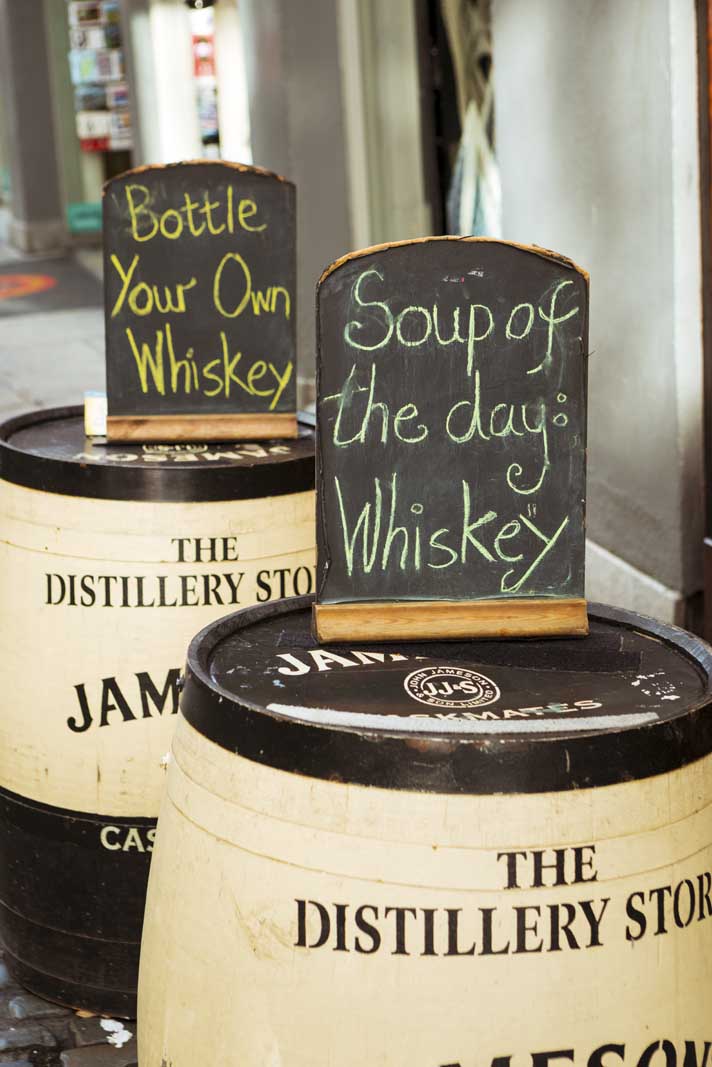 Bottle
Your Own
Whiskey
Soup of
the day:
Whiskey
THE
DISTILLERY STO
JAM
CAS
JAM
JOHN JAMESON
JJ&S
LIMITED
SKMATES
THE
DISTILLERY STOR
AMESON